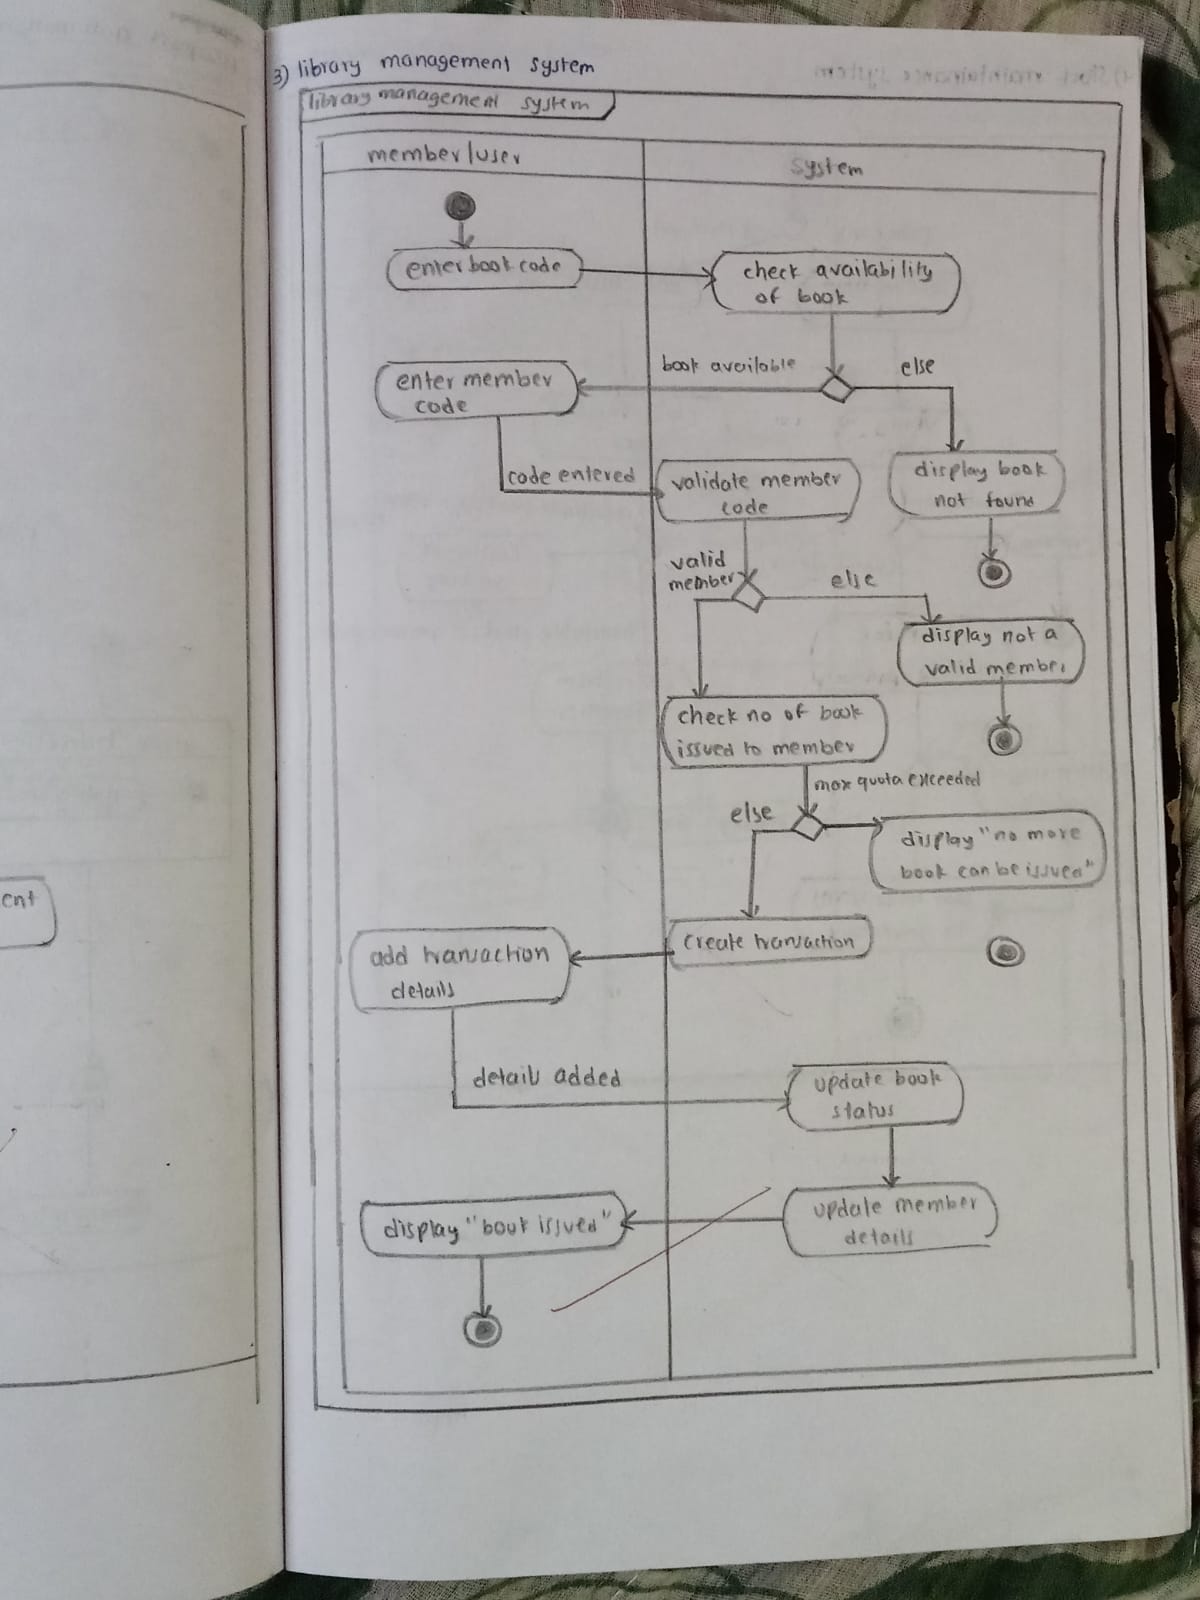 3) library management system
library management system
member/user
system
enter book code
check availability
of book
book available
else
enter member
code
code entered
validate member
code
display book
not found
valid
member
else
display not a
valid member
check no of book
issued to member
max quota exceeded
else
display "no more
book can be issued"
create transaction
add transaction
details
details added
update book
status
update member
details
display "book issued"
ent